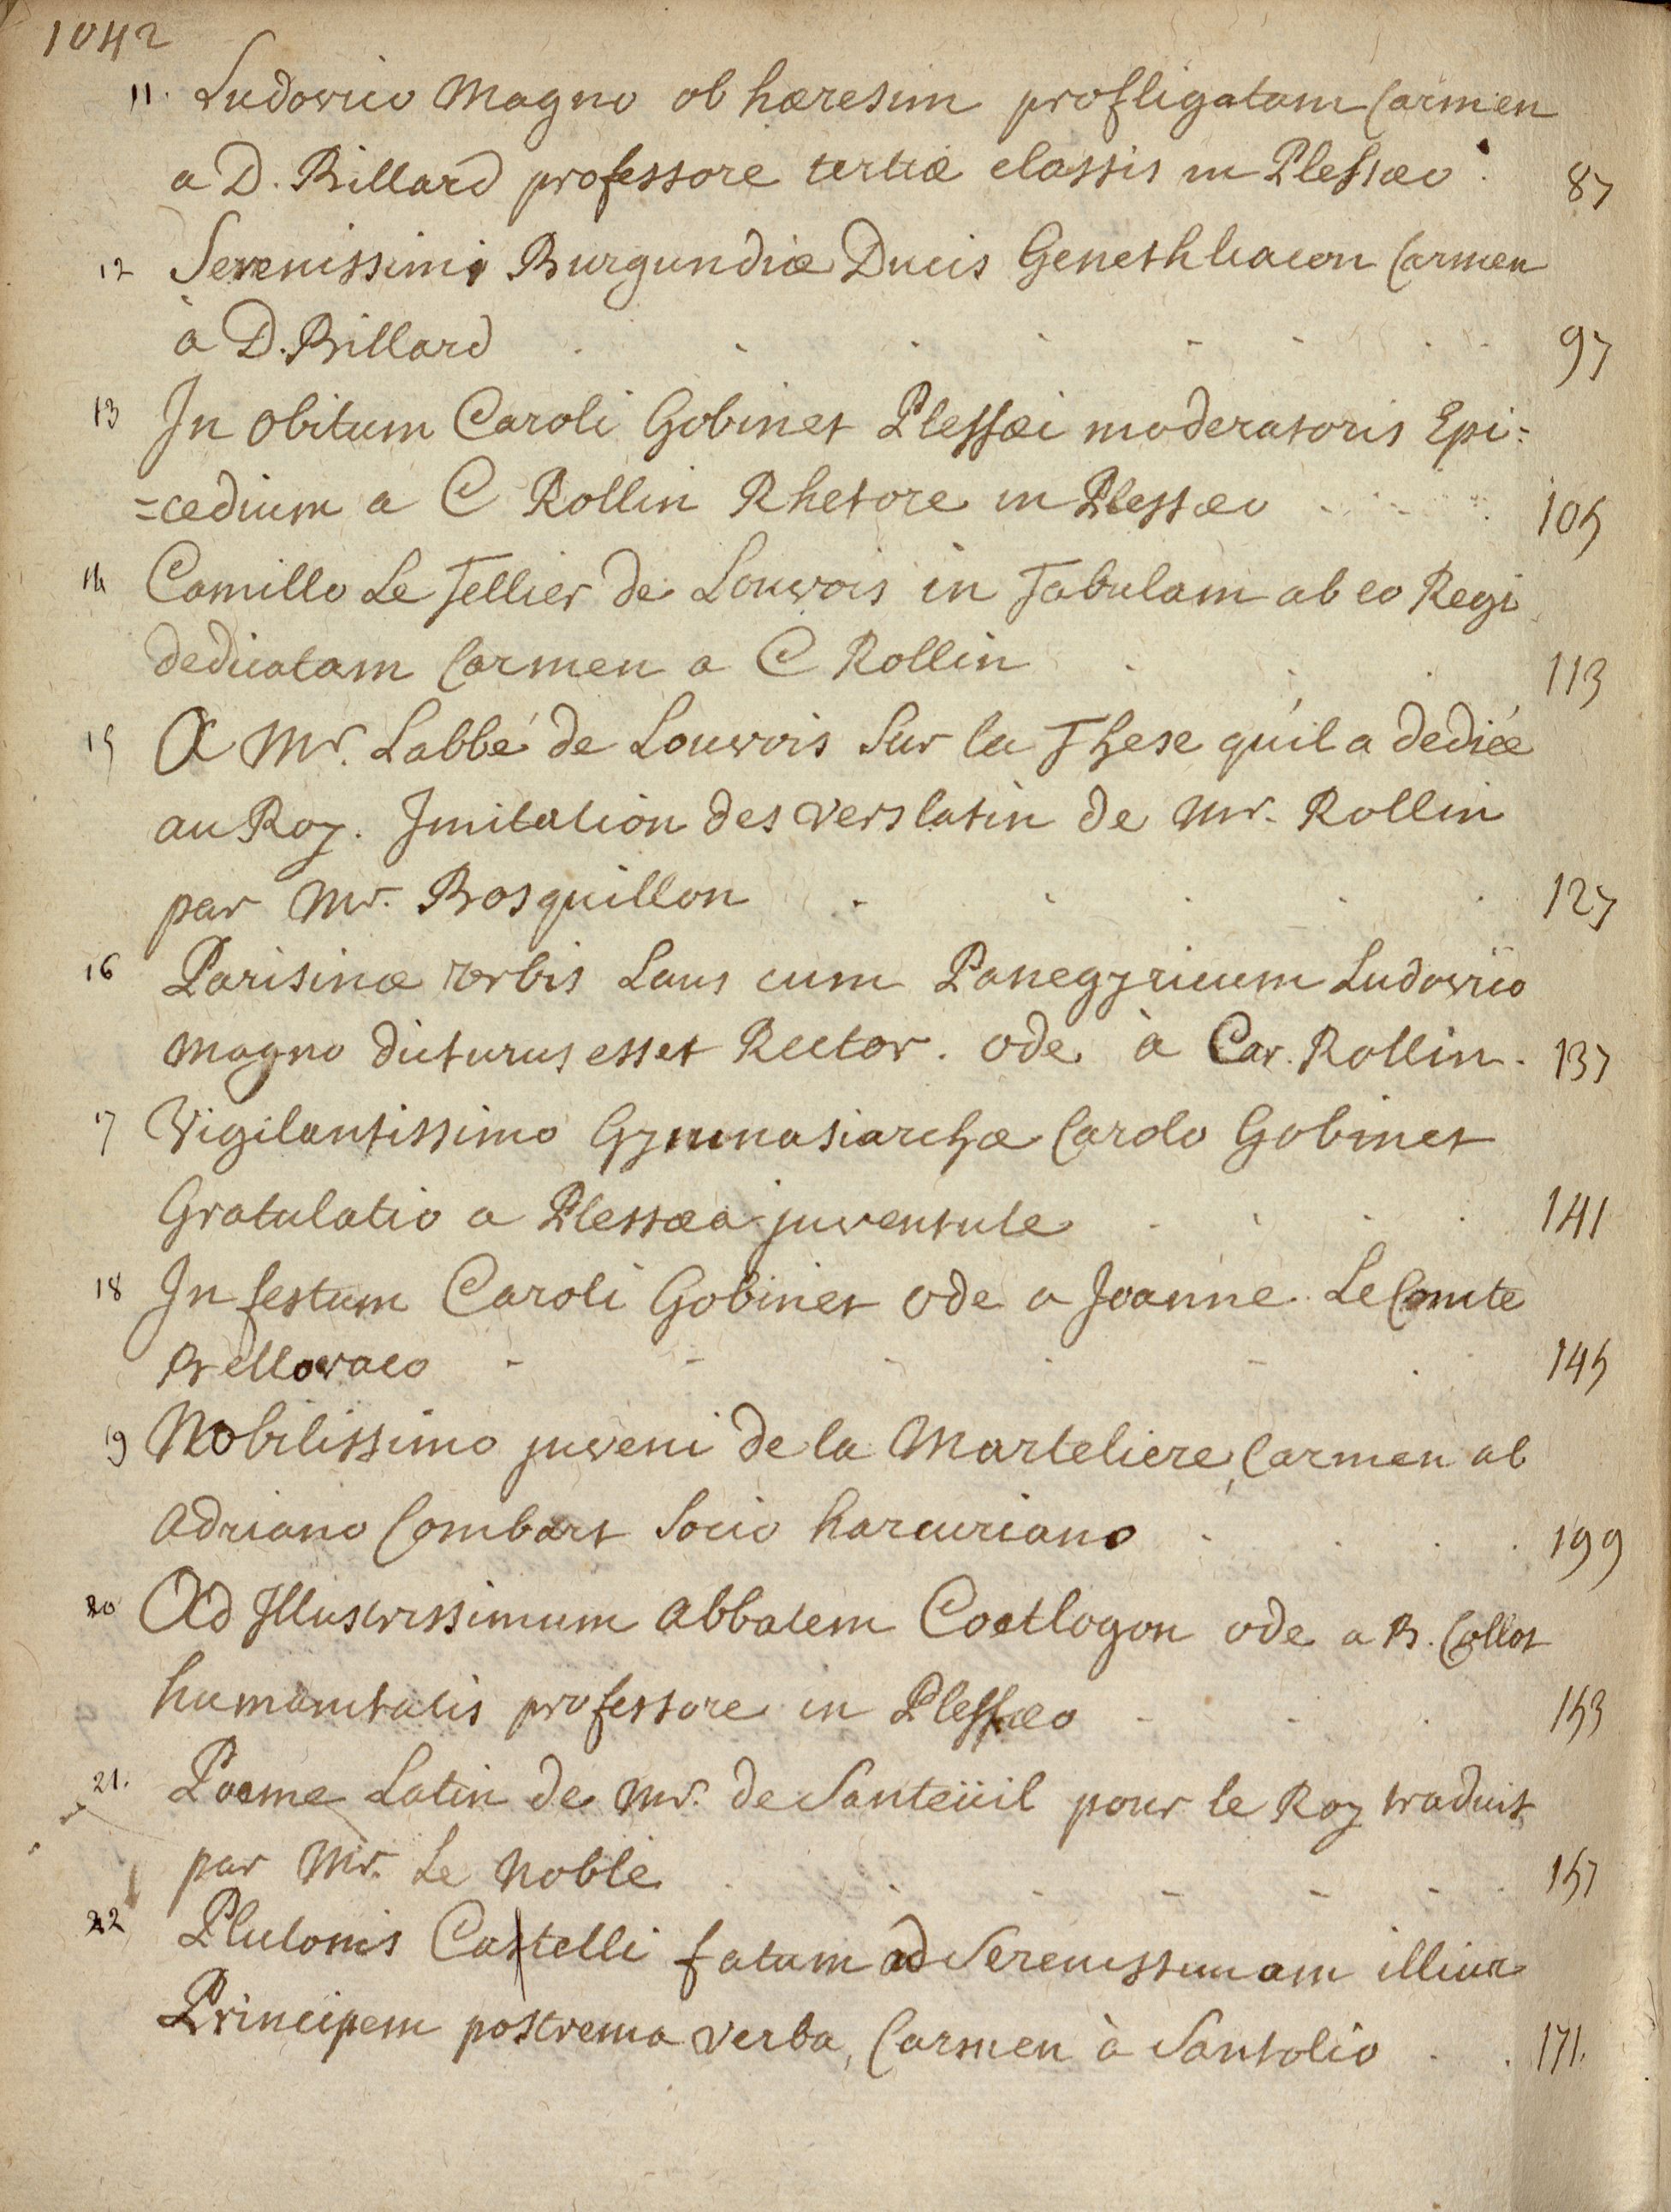 1042
11. Ludovico Magno ob hæresim profligatam Carmen
a D. Billard professore tertiæ classis in Plessæo. 87
12 Serenissimi Burgundiæ Ducis Genethliacon Carmen
à D. Billard . . . . . . . . 97
13 In obitum Caroli Gobinet Plessæi moderatoris Epi=
=cedium a C Rollin Rhetore in Plessæo . . . . 105
14 Camillo Le Tellier de Louvois in Tabulam ab eo Regi
dedicatam Carmen a C Rollin . . . 113
15 A Mr. Labbé de Louvois Sur la These qu'il a dediée
au Roy. Imitation des vers latin de Mr. Rollin
par Mr. Bosquillon . . . . . 127
16 Parisinæ Urbis Laus cum Panegyricum Ludovico
magno dicturus esset Rector. ode à Car. Rollin. 137
17 Vigilantissimo Gymnasiarchæ Carolo Gobinet
Gratulatio a Plessæa juventute . . . . 141
18 In festum Caroli Gobinet ode a Joanne Le Comte
Bellovaco - - - . - . 145
19 Nobilissimo juveni de la Marteliere, Carmen ab
Adriano Combart Socio harcuriano . . . . 199
20 Ad Illustrissimum abbatem Coetlogon ode a B. Collot
humanitatis professore in Plessæo - . - . 153
21. Poeme Latin de Mr. de Santeüil pour le Roy traduit
par Mr. Le Noble . . - - - - . 157
22 Plutonis Castelli fatum ad Serenissimam illius
Principem postrema verba, Carmen à Santolio . . 171.